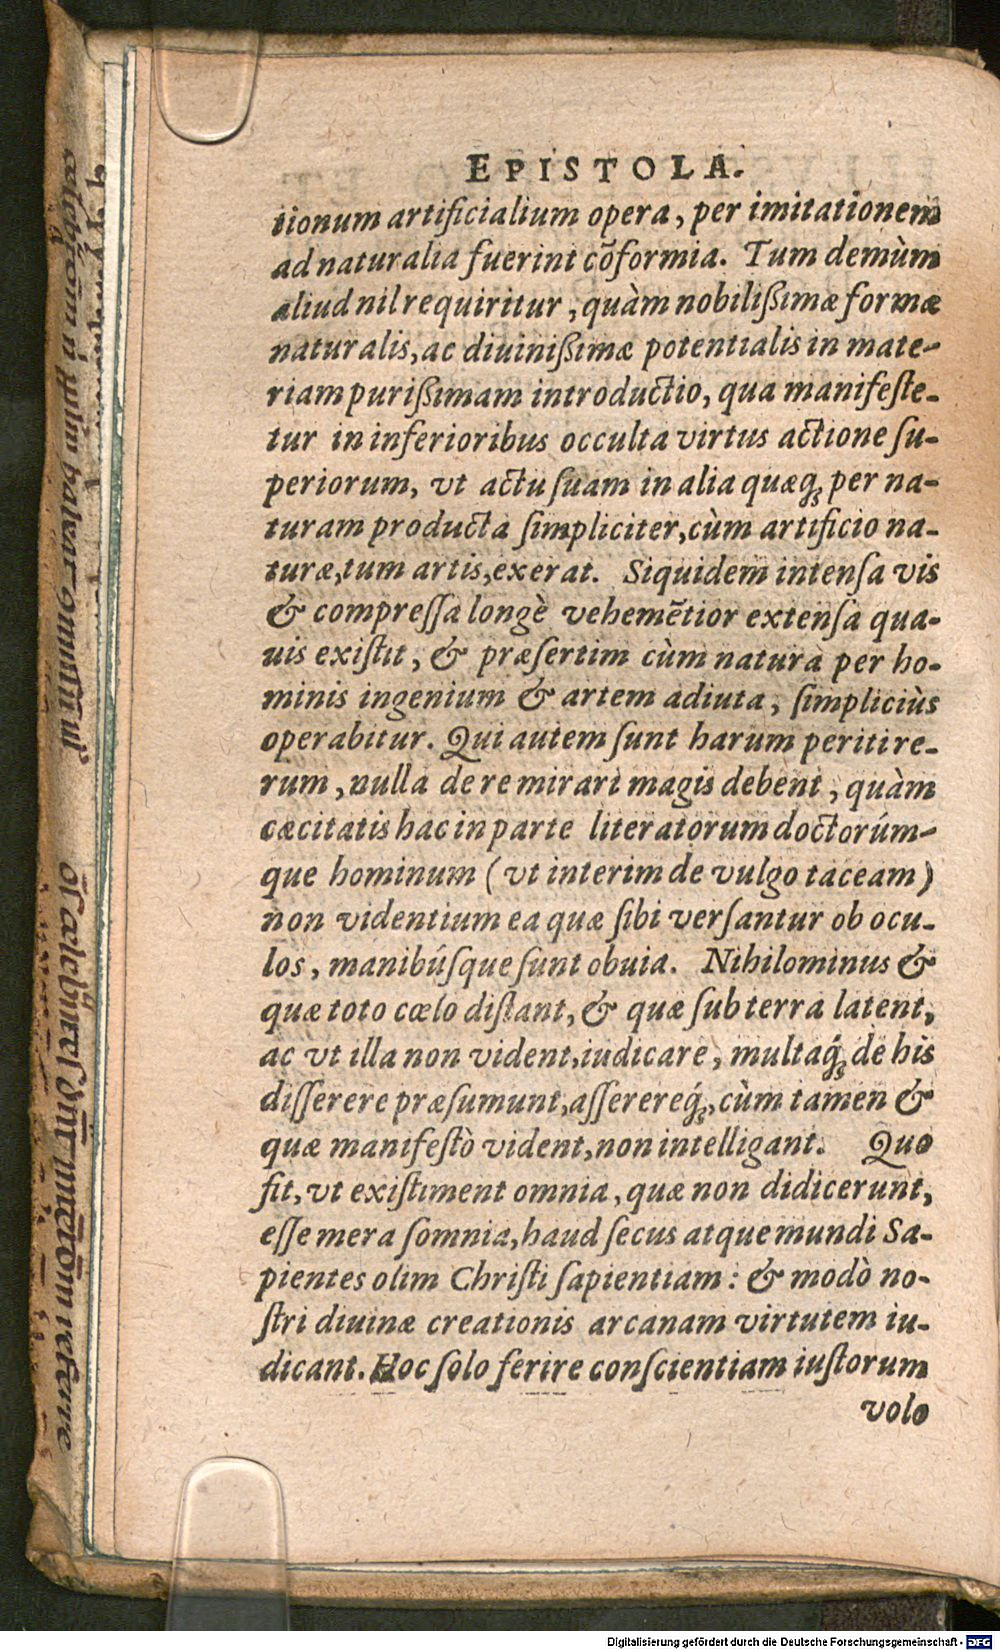 EPISTOLA.
tionum artificialium opera, per imitationem
ad naturalia fuerint cõformia. Tum demùm
aliud nil requiritur, quàm nobilißimæ formæ
naturalis, ac diuinißimæ potentialis in mate-
riam purißimam introductio, qua manifeſte-
tur in inferioribus occulta virtus actione ſu-
periorum, vt actu ſuam in alia quæqꝫ per na-
turam producta ſimpliciter, cùm artificio na-
turæ, tum artis, exerat. Siquidem intenſa vis
& compreſſa longè vehemẽtior extenſa qua-
uis exiſtit, & præſertim cùm natura per ho-
minis ingenium & artem adiuta, ſimpliciùs
operabitur. Qui autem ſunt harum periti re-
rum, nulla de re mirari magis debent, quàm
cæcitatis hac in parte literatorum doctorúm-
que hominum (vt interim de vulgo taceam)
non videntium ea quæ ſibi verſantur ob ocu-
los, manibúſque ſunt obuia. Nihilominus &
quæ toto cœlo diſtant, & quæ ſub terra latent,
ac vt illa non vident, iudicare, multaq́ꝫ de his
diſſerere præſumunt, aſſerereq́ꝫ, cùm tamen &
quæ manifeſtò vident, non intelligant. Quo
fit, vt exiſtiment omnia, quæ non didicerunt,
eſſe mera ſomnia, haud ſecus atque mundi Sa-
pientes olim Chriſti ſapientiam: & modò no-
ſtri diuinæ creationis arcanam virtutem iu-
dicant. Hoc ſolo ferire conſcientiam iuſtorum
volo
Digitalisierung gefördert durch die Deutsche Forschungsgemeinschaft - DFG